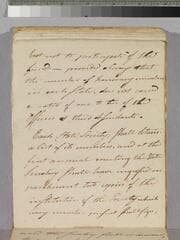 not to partake of this
provided always that
the number of honorary members
in each State does not exceed
a ratio of one to of the
officers or their descendants.
Each State Society shall obtain
a list of its members, and at the
first annual meeting the State
Secretary shall have engrossed on
parchment two copies of the
institution of the Society, which
every member present shall sign